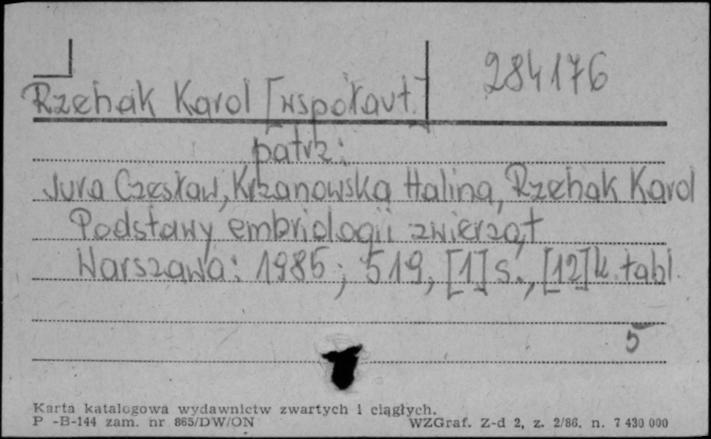 284176
Rzehak Karol [współaut.]
patrz:
Jura Czesław, Krzanowska Halina, Rzehak Karol
Podstawy embriologii zwierząt
Warszawa: 1985; 519, [1] s., [12] k. tabl.
5
Karta katalogowa wydawnictw zwartych i ciągłych.
P -B-144 zam. nr 865/DW/ON WZGraf. Z-d 2, z. 2/86. n. 7 430 000